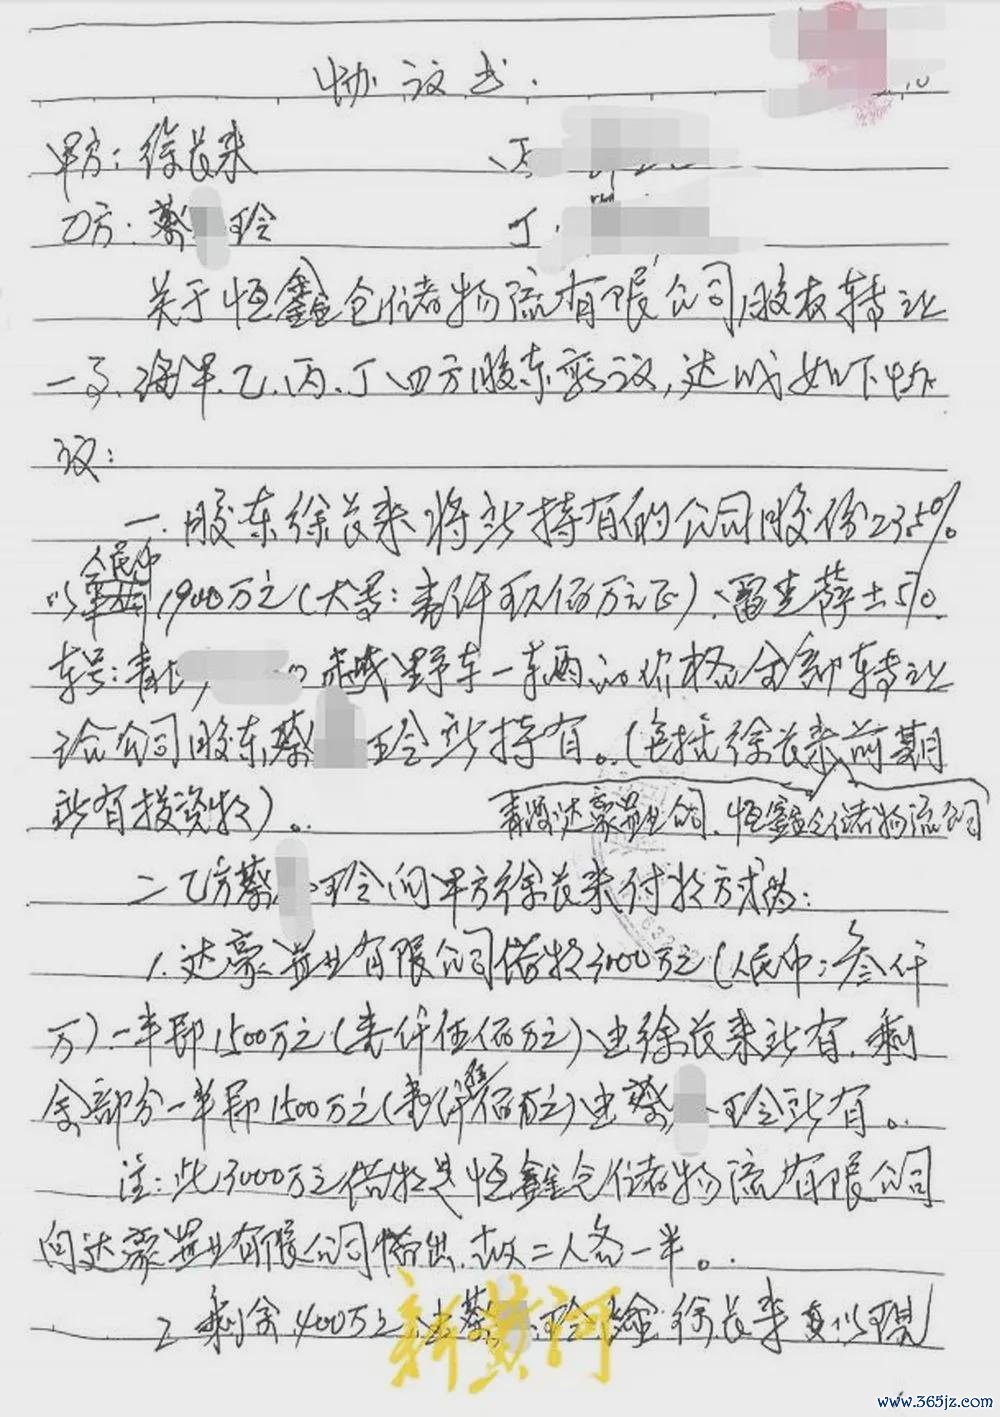 协议书.
甲方:徐长来
乙方:蔡 玲
丁
关于恒鑫仓储物流有限公司股权转让
一事.经甲.乙.丙.丁四方股东商议,达成如下协
议:
一.股东徐长来将所持有的公司股份23.5%
人民币
以 1900万元(大写:壹仟玖佰万元正)、雷克萨士570
车号: 越野车一车两 价格全部转让
给公司股东蔡 玲所持有。(包括徐长来前期
所有投资款)。
青源达豪置业公司.恒鑫仓储物流公司
二乙方蔡 玲向甲方徐长来付款方式为:
1.达豪置业有限公司借款3000万元(人民币:叁仟
万).一半即1500万元(壹仟伍佰万元)由徐长来所有.剩
余部分一半即1500万元(壹仟伍佰万元)由蔡 玲所有。
注:此3000万元借款是恒鑫仓储物流有限公司
向达豪置业有限公司借出.故二人各一半。
2 剩余400万元由蔡 玲给徐长来 以现
新黄河
www.365jz.com